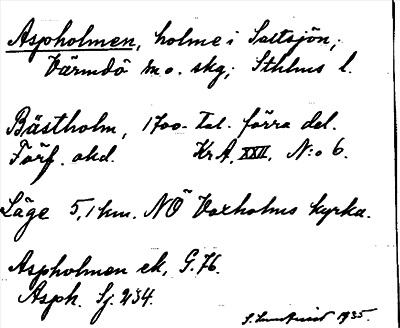 Aspholmen, holme i Saltsjön,
Värmdö m.o. skg; Sthlms l.
Bästholm, 1700-tal. förra del.
Förf. okd. KrA. XXII. N:o 6.
Läge 5,1 km. NÖ Vaxholms kyrka.
Aspholmen ek, G.76.
Asph. Sj. 234.
1935.